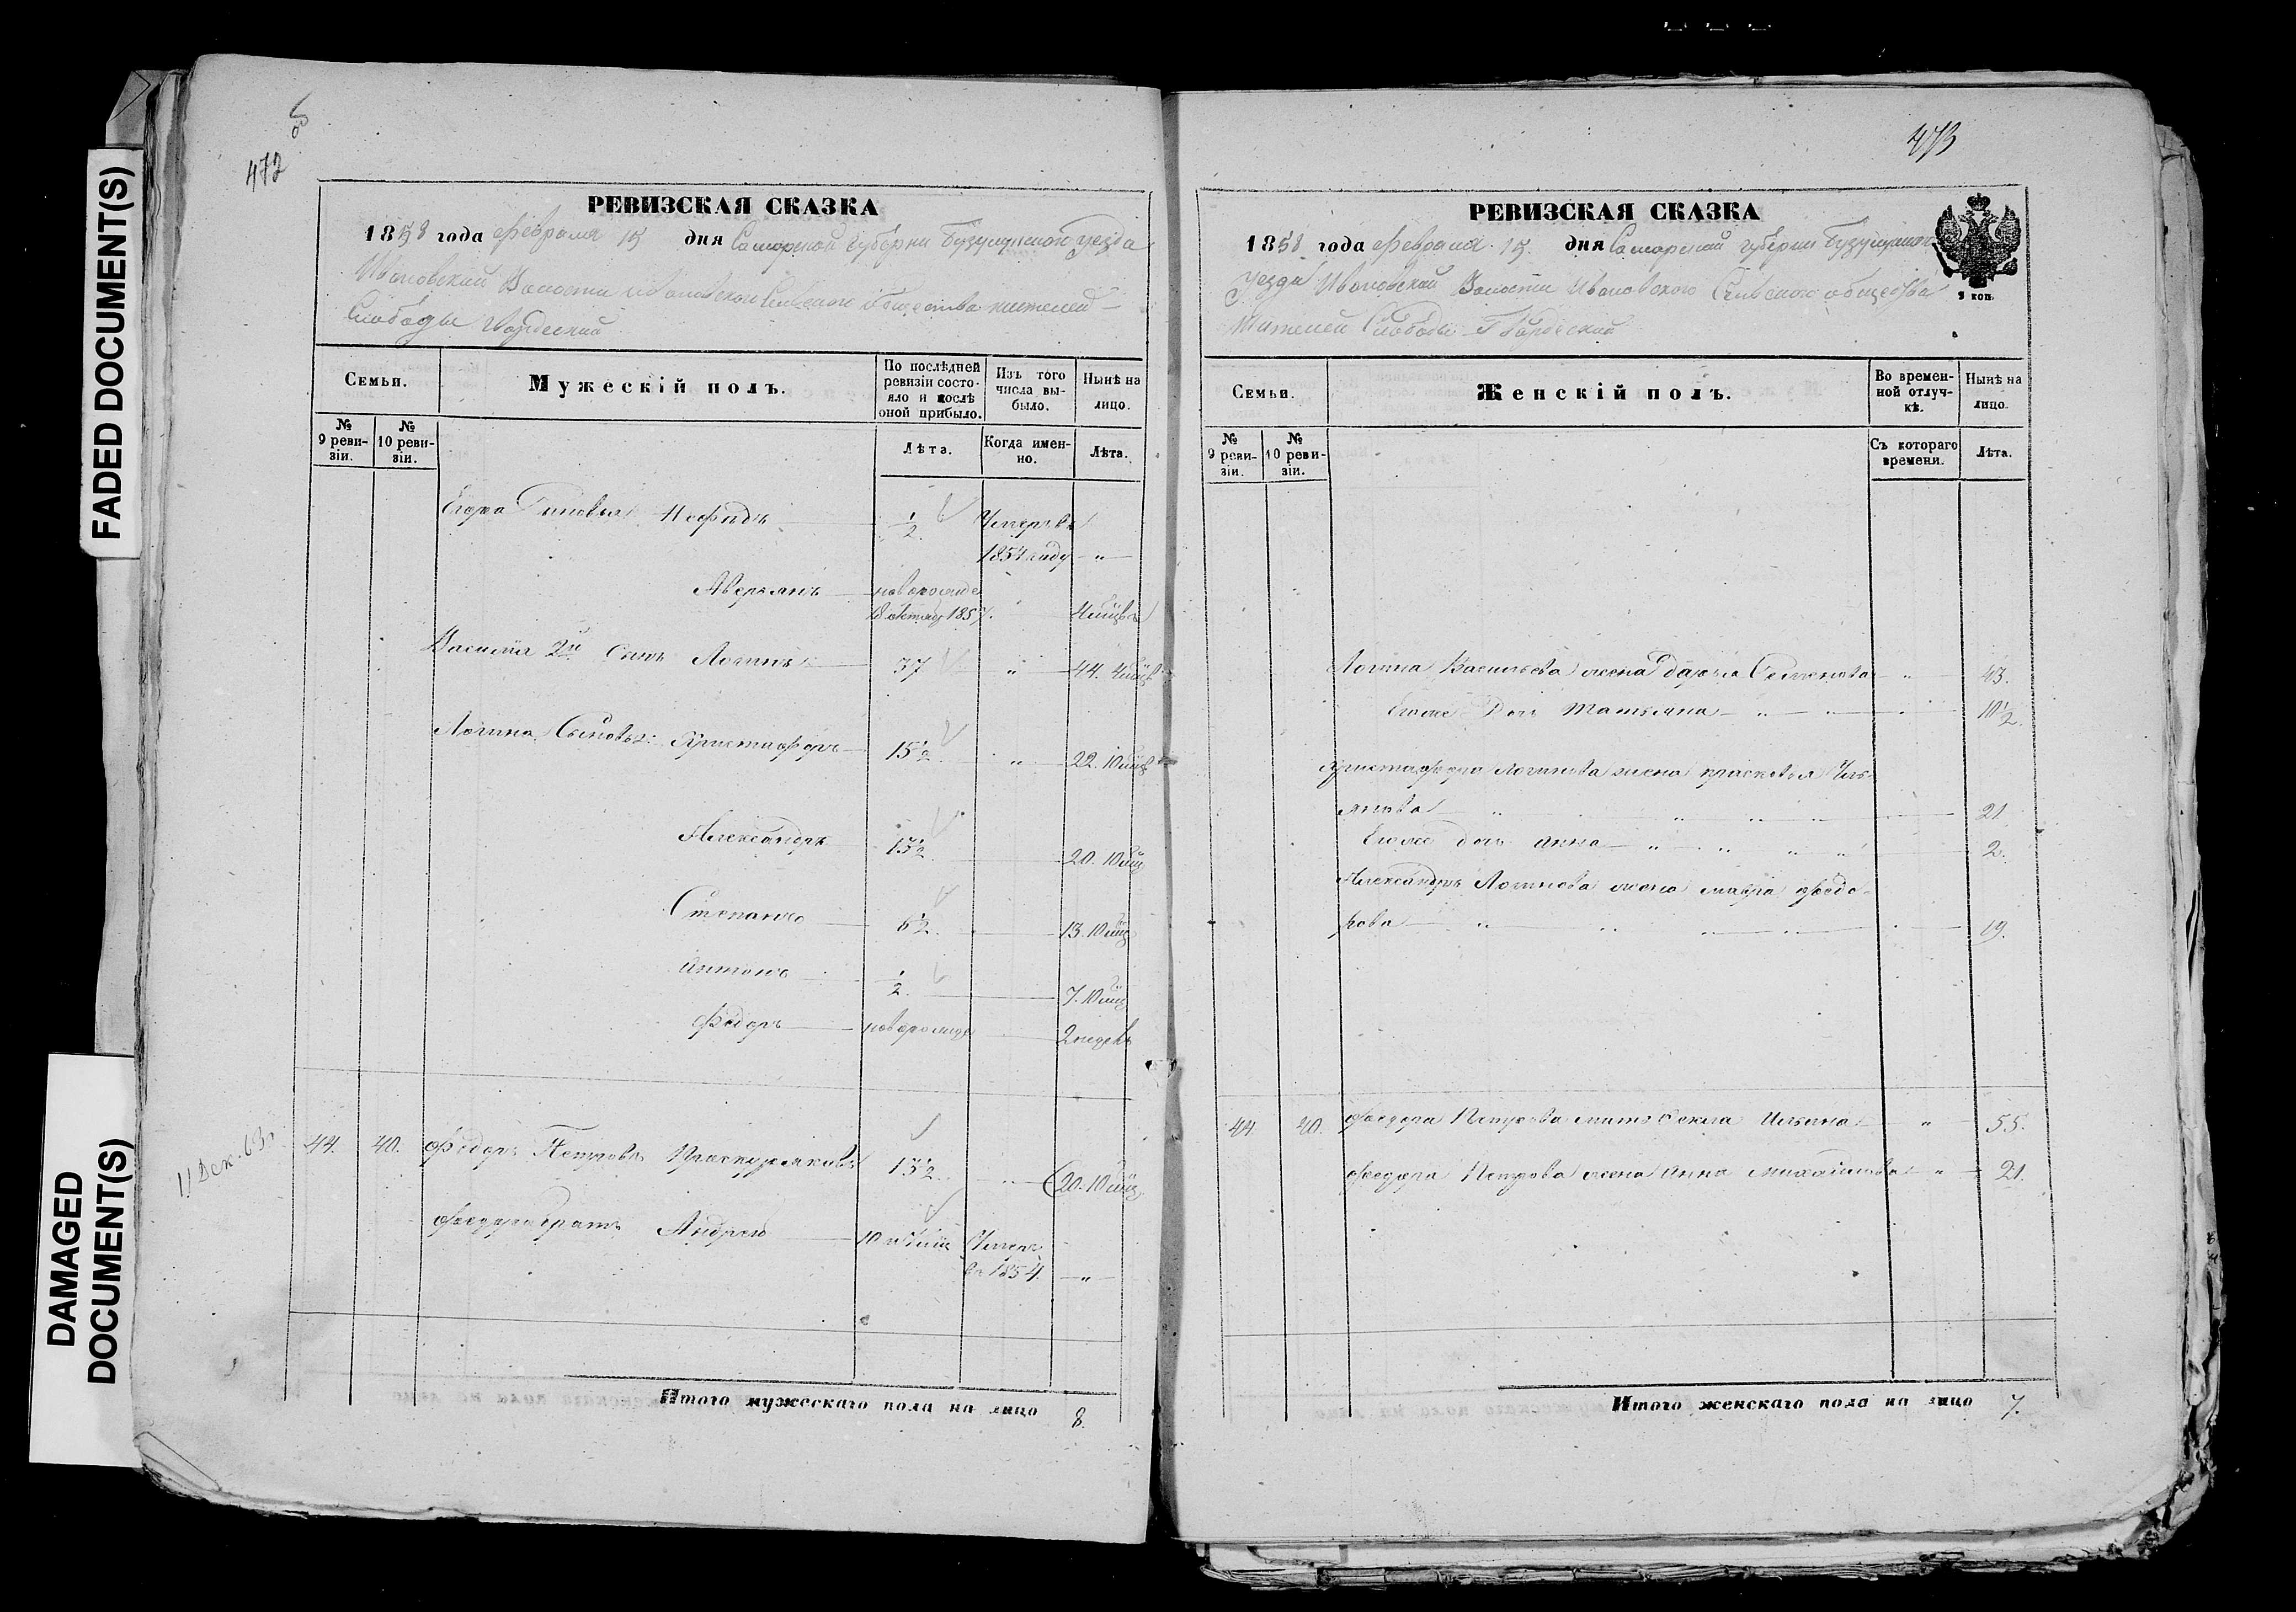 FADED DOCUMENT(S)
DAMAGED
DOCUMENT(S)
об
472
РЕВИЗСКАЯ СКАЗКА
1858 года февраля 15 дня Самарской губернии Бузулукского уезда
Ивановской Волости Ивановского Сельского Общества жителей
Слободы
Семьи.
Мужескій полъ.
По послѣдней ревизіи состояло и послѣ оной прибыло.
Изъ того числа выбыло.
Нынѣ на лицо.
№ 9 ревизіи.
№ 10 ревизіи.
Лѣта.
Когда именно.
Лѣта.
Егора Сыновья Нефидъ 1/2 Умеръ въ
1854 году "
Аверьянъ новорожде
октяб 1857. 4 мѣцъ
Василія 2й Сынъ Логинъ 37 " 44. 4 мѣц
Логина Сыновья: Христофоръ 15 1/2 " 22. 10 мѣц
Александръ 13 1/2 20. 10 мѣц
Степанъ 6 1/2 13. 10 мѣц
Антонъ 1/2 7. 10 мѣц
Федоръ новорожде 2 недѣль
11 Дек. 63
44. 40. Федоръ Петровъ Проскуряковъ 13 1/2 " 20. 10 мѣц
Федора братъ Андрей 10 мѣц Умеръ
въ 1854. "
Итого мужескаго пола на лицо 8.
473
РЕВИЗСКАЯ СКАЗКА
1858 года февраля 15. дня Самарской губернии Бузулукского
Уезда Ивановской Волости Ивановского Сельского общества
Жителей Слободы
3 коп.
Семьи.
Женскій полъ.
Во временной отлучкѣ.
Нынѣ на лицо.
№ 9 ревизіи.
№ 10 ревизіи.
Съ котораго времени.
Лѣта.
Логина Васильева жена Дарья Семенова " 43.
Его же Дочь Татьяна " " " 10 1/2.
Христофора Логинова жена Прасковья Уль-
янова " " " " 21
Его же дочь Анна " " " " 2.
Александра Логинова жена Мавра Федо-
рова " " " " 19.
44 40. Федора Петрова мать Фекла Ильина " 55.
Федора Петрова жена Анна Михайлова " 21.
Итого женскаго пола на лицо 7.